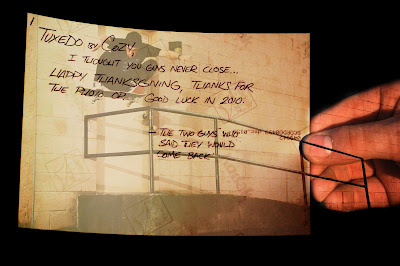 TUXEDO BY COZY,
I THOUGHT YOU GUYS NEVER CLOSE...
HAPPY THANKSGIVING, THANKS FOR
THE PHOTO OP. GOOD LUCK IN 2010.
- THE TWO GUYS WHO
SAID THEY WOULD
COME BACK